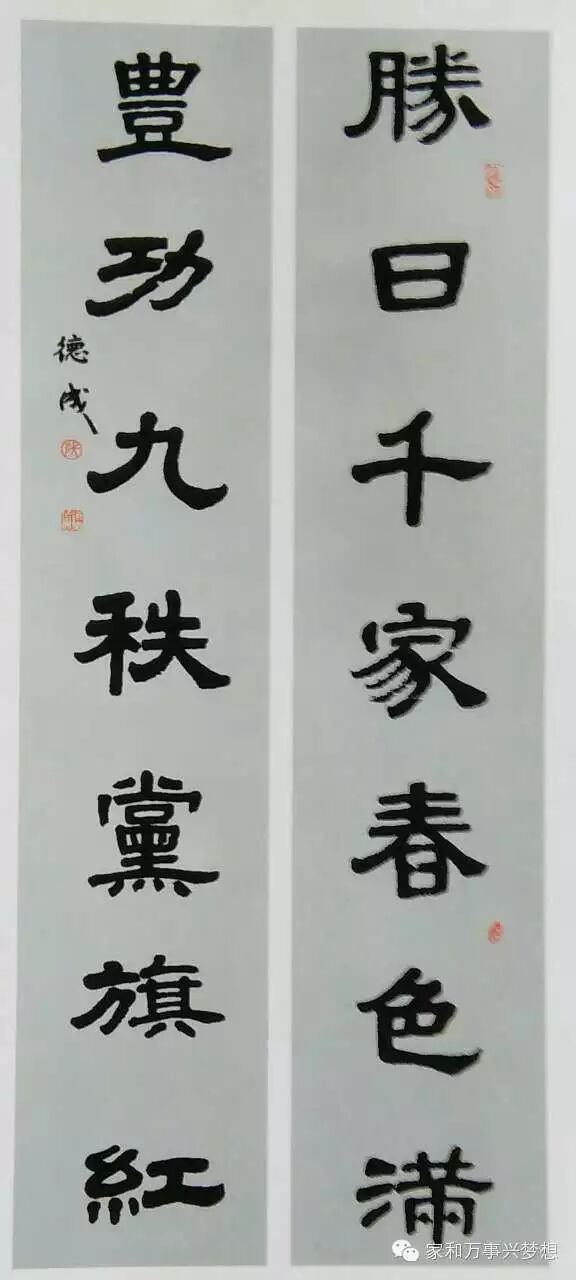 勝日千家春色滿
豊功九秩黨旗紅
德成
家和万事兴梦想